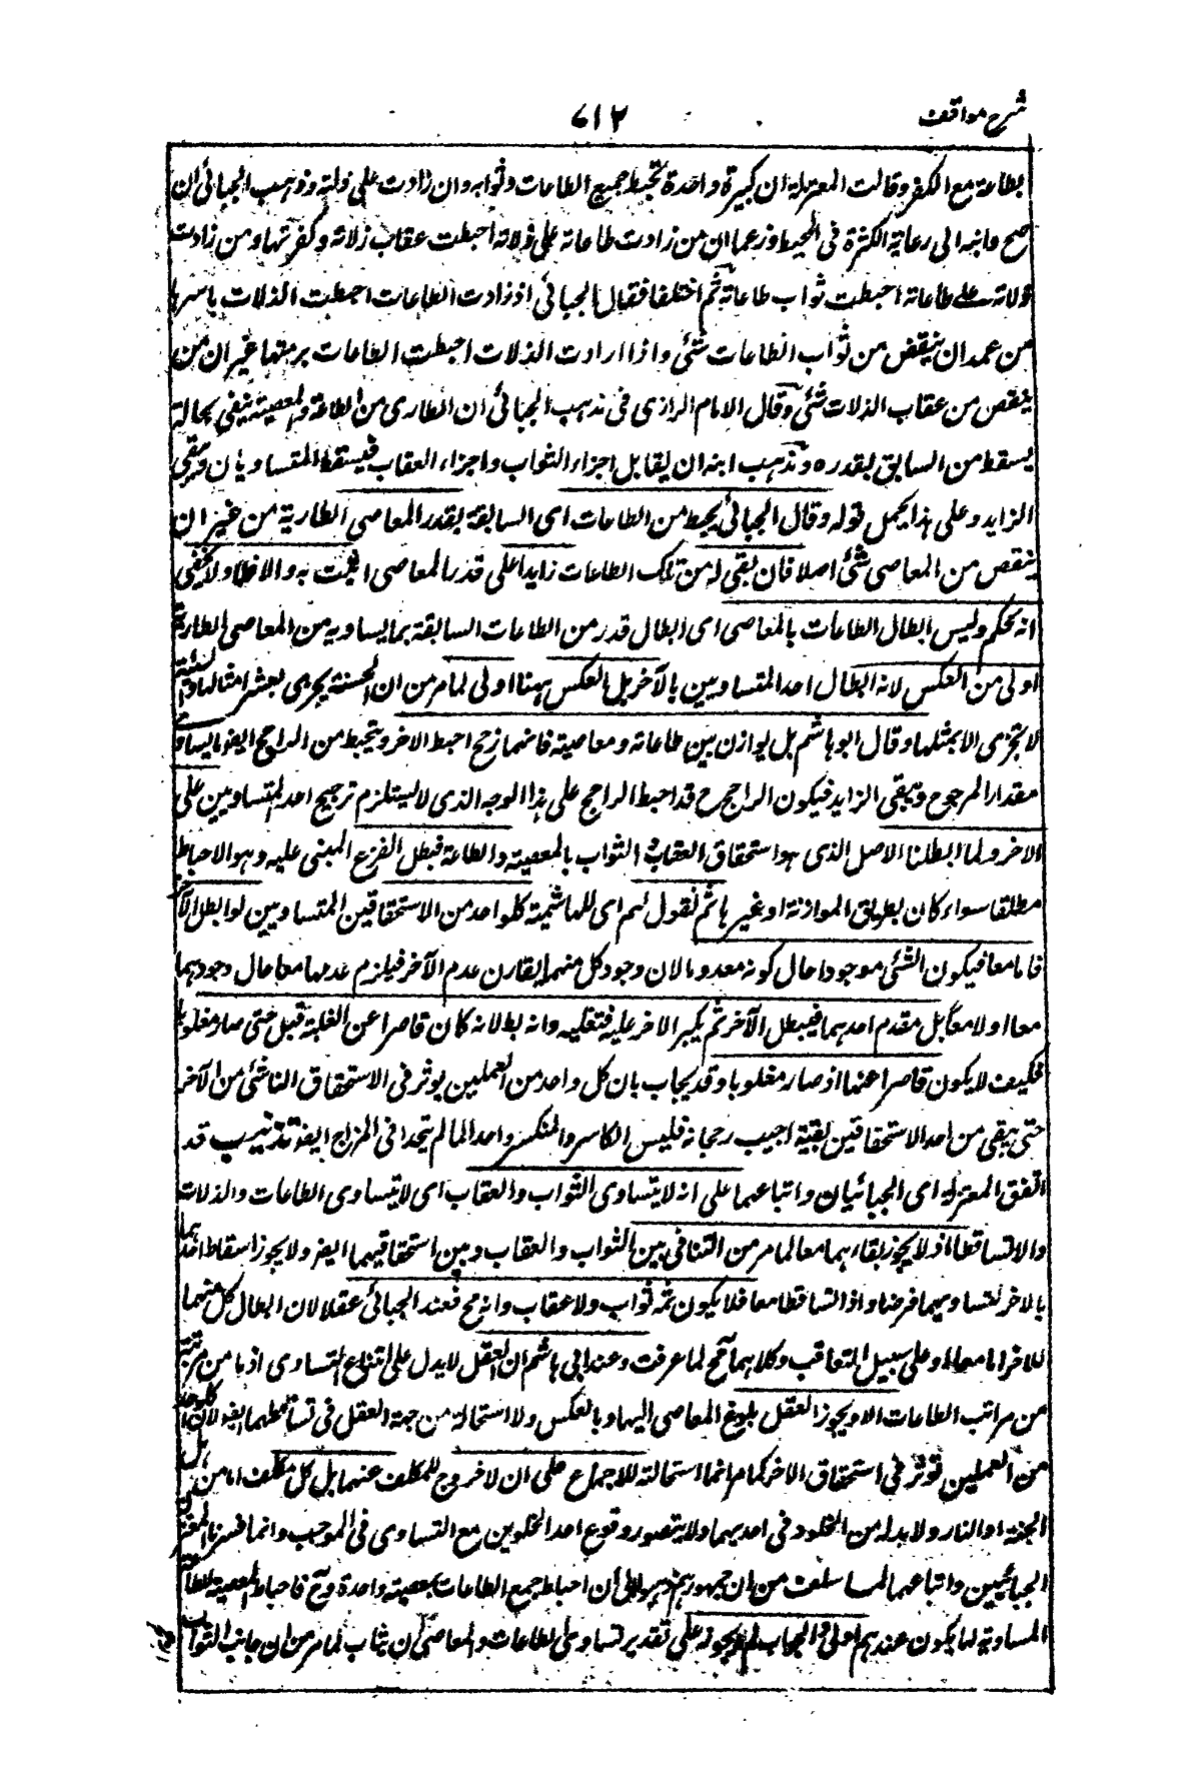 شرح مواقف
٧١٢
بطاعة مع الكفر وقالت المعتزلة ان كبيرة واحدة تحبط جميع الطاعات وثوابه وان زادت على زلته وذهب الجبائى ان
صح وابنه الى رعاية الكثرة فى المحبط وزعما ان من زادت طاعاته على زلاته احبطت عقاب زلاته وكفرتها ومن زادت
زلاته على طاعاته احبطت ثواب طاعاته ثم اختلفا فقال الجبائى اذ زادت الطاعات احبطت الذلات باسرها
من عمدان ينقض من ثواب الطاعات شئ واذا ارادت الذلات احبطت الطاعات برمتها غير ان من
ينقص من عقاب الذلات شئ وقال الامام الرازى فى مذهب الجبائى ان الطارى من الطاعة والمعصية يبقى بحاله
يسقط من السابق بقدره ومذهب ابنه ان يقابل اجزاء الثواب واجزاء العقاب فيسقط المتساويان ويبقى
الزايد وعلى هذا يحمل قوله وقال الجبائى يحبط من الطاعات اى السابقة بقدر المعاصى الطارية من غير ان
ينقص من المعاصى شئ اصلا فان بقى له من تلك الطاعات زايد على قدر المعاصى اثيبت به والا فلا ولا يخفى
انه تحكم وليس ابطال الطاعات بالمعاصى اى ابطال قدر من الطاعات السابقة بما يساويه من المعاصى الطارية
اولى من العكس لانه ابطال احد المتساويين بالآخر بل العكس ههنا اولى لما مر من ان الحسنة يجزى بعشر امثالها والسيئة
لا تجزى الا بمثلها وقال ابو هاشم بل يوازن بين طاعاته ومعاصيه فانهما رجح احبط الاخر ويحبط من الراجح ايضا ما يساوى
مقدار المرجوح ويبقى الزايد فيكون الراجح ح قد احبط الراجح على هذا الوجه الذى لا يستلزم ترجيح احد المتساويين على
الاخر ولما ابطلنا الاصل الذى هو استحقاق العقاب او الثواب بالمعصية والطاعة فبطل الفرع المبنى عليه وهو الاحباط
مطلقا سواء كان بطريق الموازنة او غيرها ثم نقول لهم اى للهاشمية كلواحد من الاستحقاقين المتساويين لو ابطل الآخر
فاما معا فيكون الشئ موجودا حال كونه معدوما لان وجود كل منهما يقارن عدم الآخر فيلزم عدمهما معا حال وجودهما
معا او لا معا بل مقدم احدهما فيبطل الآخر ثم يكبر الاخر عليه فتغلبه وانه بطلانه كان قاصرا عن الغلبة قبل حتى صار مغلوبا
فكيف لا يكون قاصرا عنها اذ صار مغلوبا وقد يجاب بان كل واحد من العملين يوثر فى الاستحقاق الناشئ من الآخر
حتى يبقى من احد الاستحقاقين بقية احيب رجحانه فليس الكاسر والمنكسر واحدا لما لم يتحدا فى المزاج ايضا تذنيب قد
اتفق المعتزلة اى الجبائيان واتباعهما على انه لا يتساوى الثواب والعقاب اى لا يتساوى الطاعات والذلات
والا لتساقطا اذ لا يجوز بقاءهما معا لما مر من التنافى بين الثواب والعقاب وبين استحقاقيهما ايضا ولا يجوز اسقاط احدهما
بالاخر لتساويهما فرضا واذا تساقطا معا فلا يكون ثمه ثواب ولا عقاب وانه مح فعند الجبائى عقلا لان ابطال كل منهما
للاخر اما معا او على سبيل التعاقب وكلاهما مح لما عرفت وعند ابى هاشم ان العقل لا يدل على امتناع التساوى اذ ما من مرتبة
من مراتب الطاعات الا ويجوز العقل بلوغ المعاصى اليها وبالعكس ولا استحالة من جهة العقل فى تساقطهما ايضا لان كلواحد
من العملين توثر فى استحقاق الاخر كما مر انما استحالة للاجماع على ان لا خروج للمكلف عنهما بل كل مكلف اما من اهل
الجنة او النار ولا بد له من الخلود فى احديهما ولا يتصور وقوع احد الخلوين مع التساوى فى الموجب وانما فسرنا المعتزلة
الجبائيين واتباعهما لما سلف من ان جمهورهم ذهبوا الى ان احباط جمع الطاعات بمعصية واحدة وح فاحباط المعصية للطاعة
المساوية لها يكون عندهم اولى والجواب لم لا يجوز على تقدير تساوى الطاعات والمعاصى ان يثاب لما مر من ان جانب الثواب